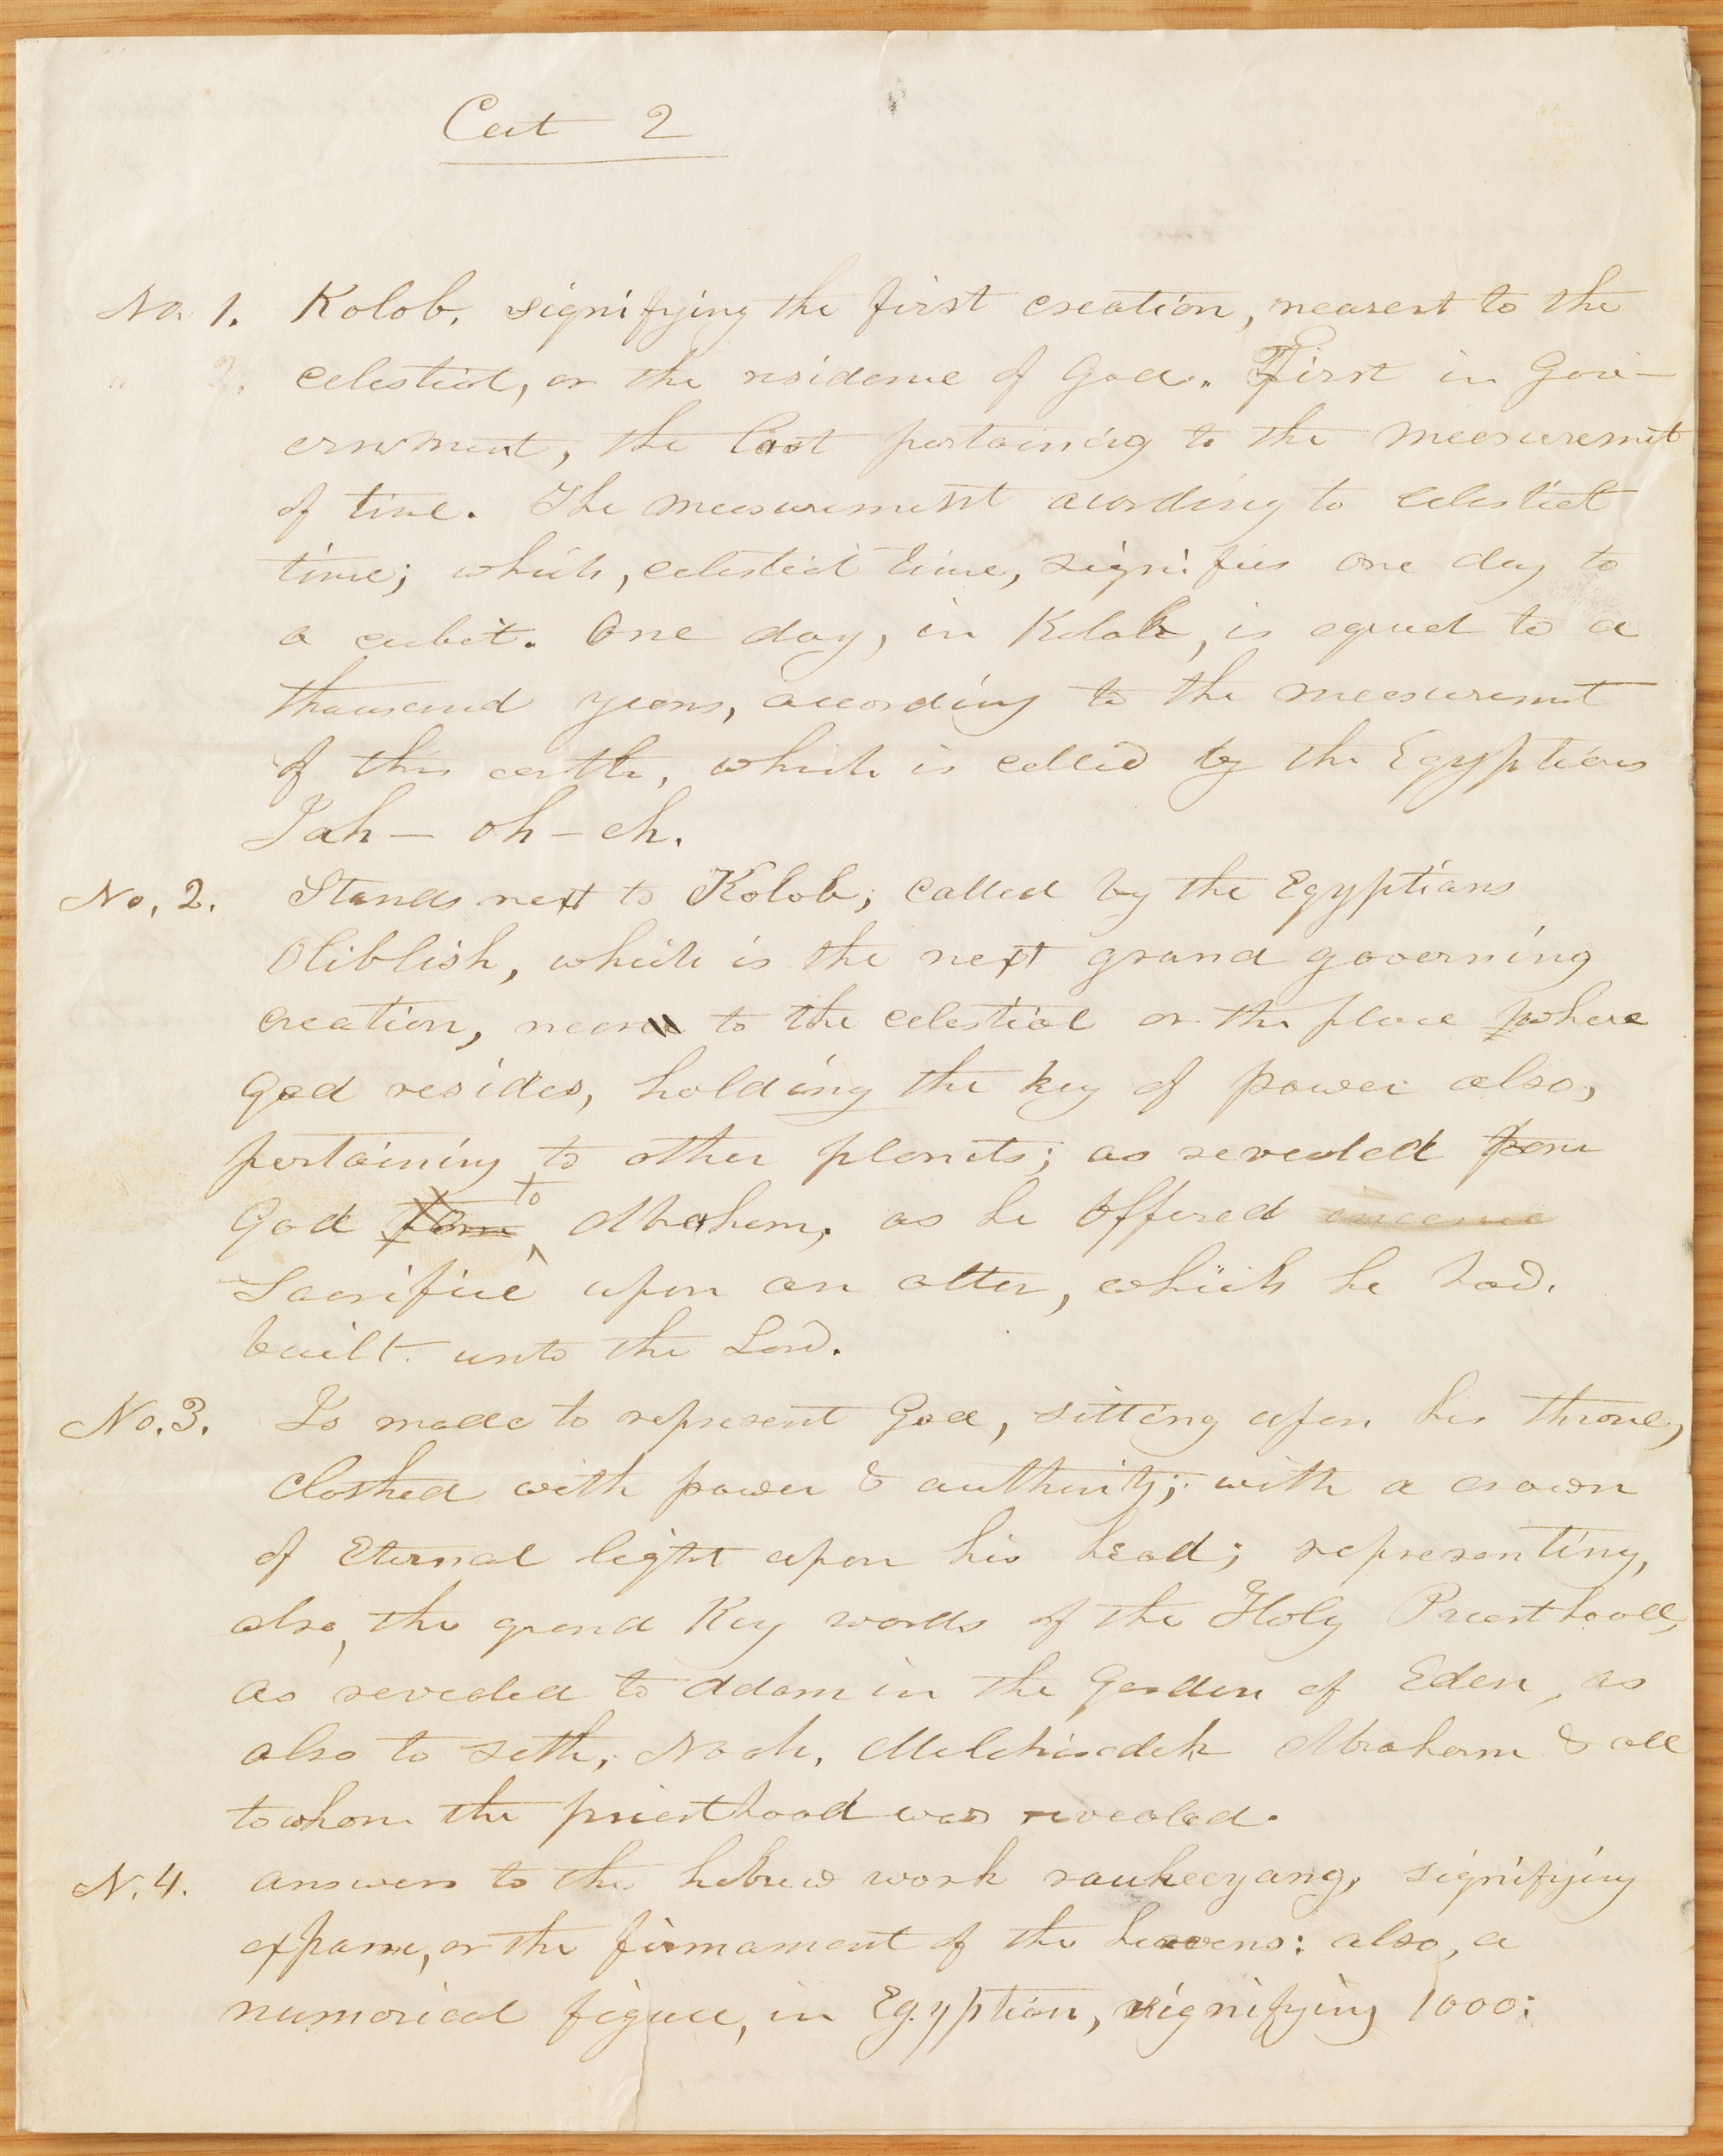 Cut 2
No. 1. Kolob, signifying the first creation, nearest to the
celestial, or the residence of God. First in Gov-
ernment, the last pertaining to the measurement
of time. The measurement acording to celestial
time; which, celestial time, signifies one day to
a cubit. One day, in Kolob, is equal to a
thousand years, according to the measurement
of this earth, which is called by the Egyptians
Jah-oh-eh.
No, 2. Stands next to Kolob; called by the Egyptians
Oliblish, which is the next grand governing
creation, near to the celestial or the place where
God resides, holding the key of power also,
pertaining to other planets; as revealed from
God from to Abraham, as he offered
Sacrifice upon an alter, which he had.
built unto the Lord.
No. 3. Is made to represent God, sitting upon his throne,
Clothed with power & authority; with a crown
of Eternal light upon his head; representing,
also, the grand Key words of the Holy Preisthood,
as revealed to Adam in the Garden of Eden, as
also to Seth, Noah, Melchisedek Abraham & all
to whom the priesthood was revealed.
N. 4. answers to the hebrew work raukeeyang, signifying
expanse, or the firmament of the heavens: also, a
numorical figure, in Egyptian, signifying 1000: